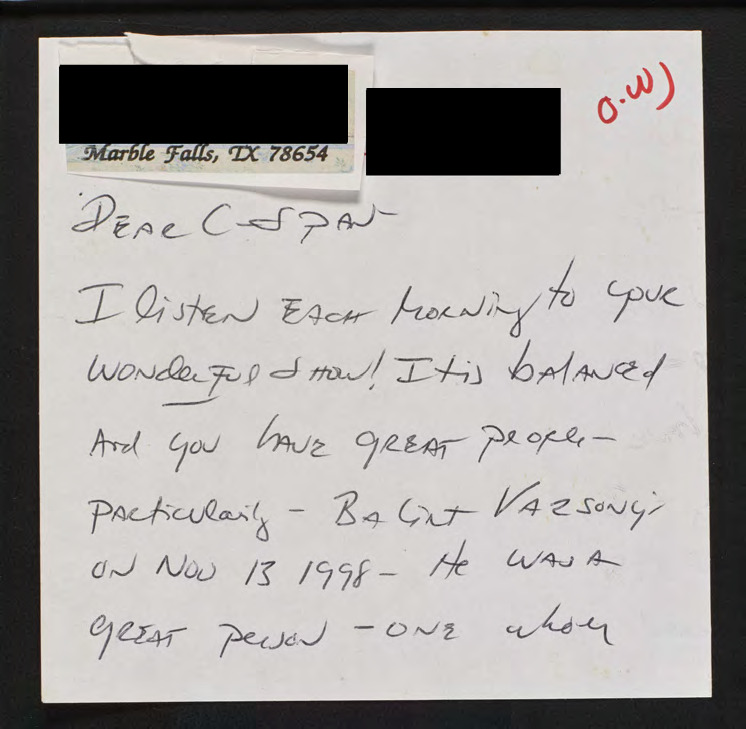 Marble Falls, TX 78654
O.W)
Dear C-Span
I listen each morning to your
wonderful show! It is balanced
And you have great people –
particularily – Balint Vazsonyi
on Nov 13 1998 – He was a
great person – one whom